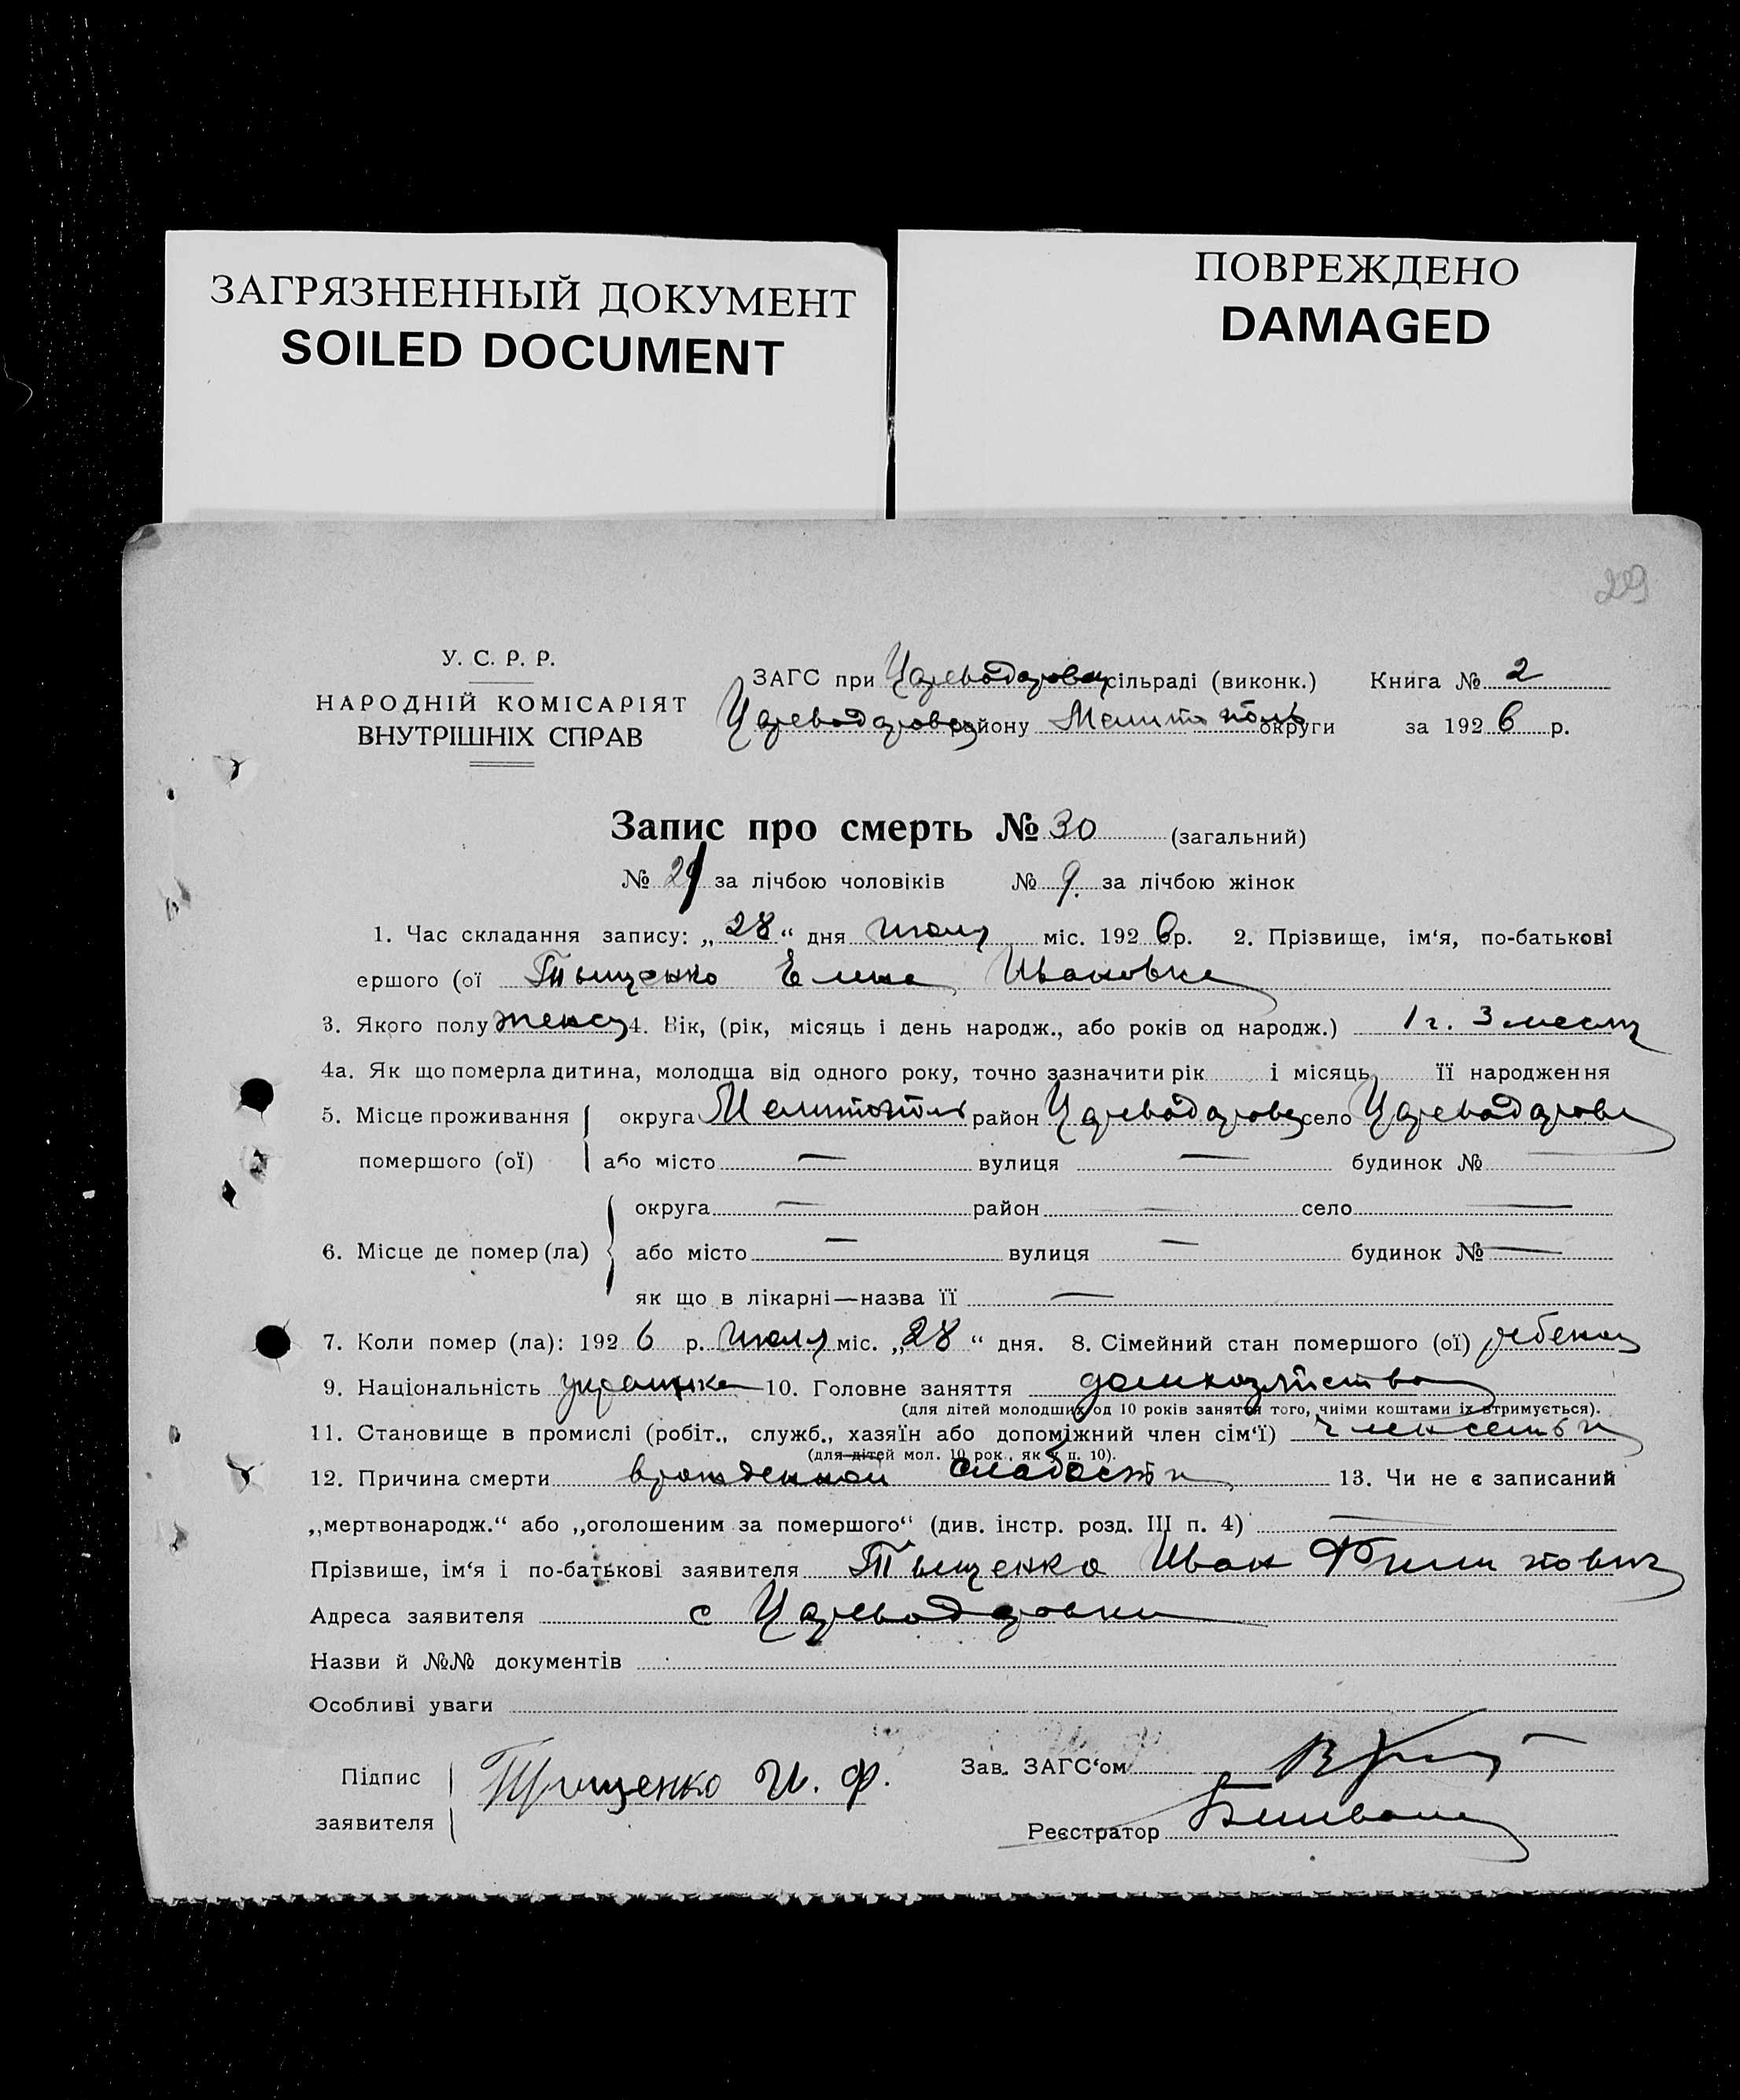 ЗАГРЯЗНЕННЫЙ ДОКУМЕНТ
SOILED DOCUMENT
ПОВРЕЖДЕНО
DAMAGED
29
У. С. Р. Р.
НАРОДНІЙ КОМІСАРІЯТ
ВНУТРІШНІХ СПРАВ
ЗАГС при сільраді (виконк.) Книга № 2
району Мелитополь округи за 1926 р.
Запис про смерть № 30 (загальний)
№ 21 за лічбою чоловіків № 9. за лічбою жінок
1. Час складання запису: „28“ дня июля міс. 1926 р. 2. Прізвище, ім‘я, по-батькові
ершого (ої Тыщенко Елена Ивановна
3. Якого полу женск 4. Вік, (рік, місяць і день народж., або років од народж.) 1 г. 3 месяц
4а. Як що померла дитина, молодша від одного року, точно зазначити рік і місяць її народження
5. Місце проживання округа Мелитополь район село
помершого (ої) або місто — вулиця — будинок № —
округа — район — село —
6. Місце де помер (ла) або місто — вулиця — будинок № —
як що в лікарні—назва її —
7. Коли помер (ла): 1926 р. июля міс. „28“ дня. 8. Сімейний стан помершого (ої) ребенок
9. Національність украинка 10. Головне заняття домхозяйство
(для дітей молодших од 10 років заняття того, чиїми коштами їх втримується).
11. Становище в промислі (робіт., служб., хазяїн або допоміжний член сім‘ї) член семьи
(для дітей мол. 10 рок., як у п. 10).
12. Причина смерти врожденной слабости 13. Чи не є записаний
„мертвонародж.“ або „оголошеним за помершого“ (див. інстр. розд. III п. 4) —
Прізвише, ім‘я і по-батькові заявителя Тыщенко Иван Филиппович
Адреса заявителя с
Назви й №№ документів
Особливі уваги
Підпис
заявителя Тыщенко И. Ф.
Зав. ЗАГС‘ом
Реєстратор